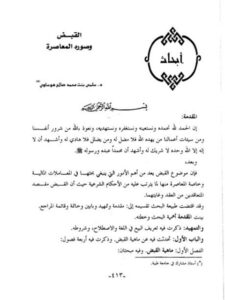 القبض
وصوره المعاصرة
أبحاث
المقدمة:
إن الحمد لله نحمده ونستعينه ونستغفره ونستهديه، ونعوذ بالله من شرور أنفسنا
ومن سيئات أعمالنا من يهده الله فلا مضل له ومن يضلل فلا هادي له وأشهد أن لا
إله إلا الله وحده لا شريك له وأشهد أن محمداً عبده ورسوله ﷺ.
وبعد،
فإن موضوع القبض يعد من أهم الأمور التي ينبغي بحثها في المعاملات المالية
وخاصة المعاصرة منها لما يترتب عليه من الأحكام الشرعية حيث أن القبض مقصد
المتعاقدين من العقد وغايتهما.
وقد اقتضت طبيعة البحث تقسيمه إلى: مقدمة وتمهيد وبابين وخاتمة وقائمة المراجع.
بينت المقدمة أهمية البحث وخطته.
والتمهيد: ذكرت فيه تعريف البيع في اللغة والاصطلاح، وشروطه.
والباب الأول: تحدثت فيه عن ماهية القبض. وذكرت فيه أربعة فصول:
الفصل الأول: ماهية القبض. وفيه مبحثان:
(*) أستاذ مشارك في جامعة طيبة.
-٤١٣-